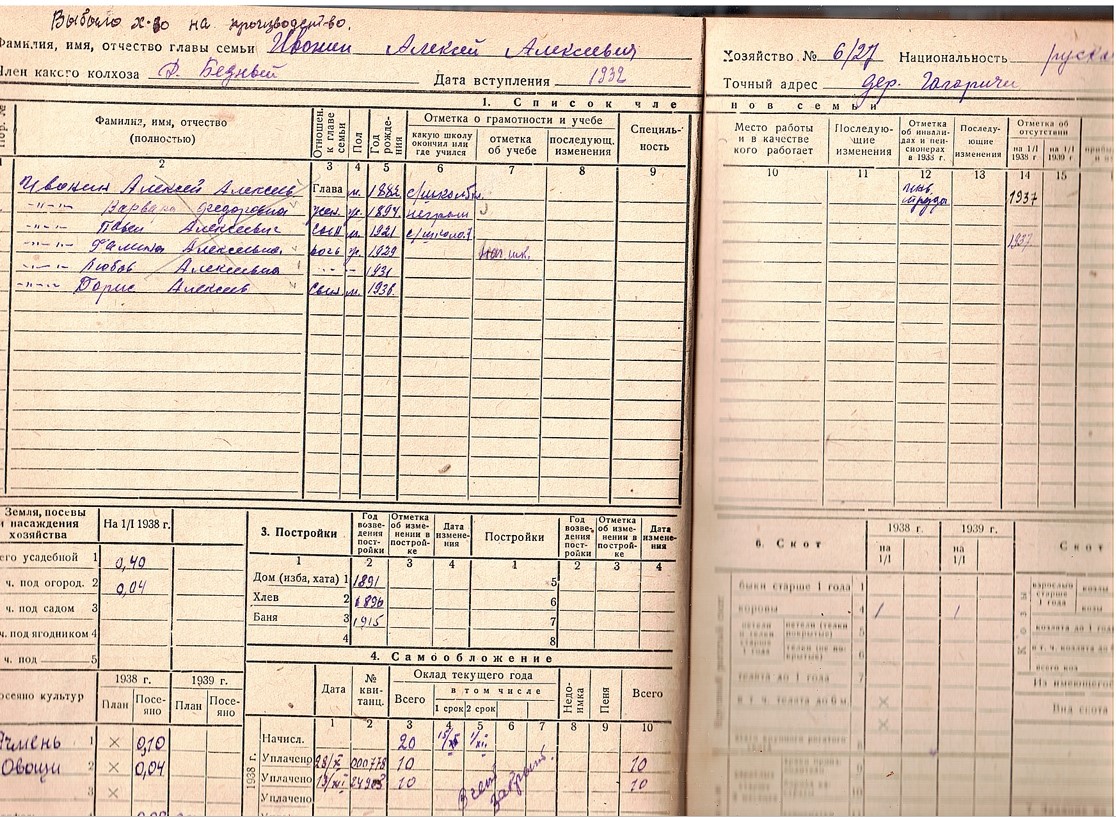 Выбыло х-во на производство.
Фамилия, имя, отчество главы семьи Ивонин Алексей Алексеевич
Член какого колхоза Д. Бедный Дата вступления 1932
Хозяйство № 6/27 Национальность
Точный адрес дер.
1. Список членов семьи
Фамилия, имя, отчество (полностью)
Отношен. к главе семьи
Пол
Год рождения
Отметка о грамотности и учебе
какую школу окончил или где учился
отметка об учебе
последующ. изменения
Специльность
Место работы и в качестве кого работает
Последующие изменения
Отметка об инвалидах и пенсионерах в 1938 г.
Последующие изменения
Отметка об отсутствии
на 1/I 1938 г.
на 1/I 1939 г.
2 3 4 5 6 7 8 9 10 11 12 13 14 15
Ивонин Алексей Алексеев Глава м. 1882 инв. труда 1937
-"-"- Варвара Федоровна жен. ж. 1894 неграм
-"-"- Павел Алексеевич сын м. 1921 1937
-"-"- Галина Алексеевна дочь ж. 1929 нач. шк.
-"-"- Любовь Алексеевна -"- -"- 1931
-"-"- Борис Алексеев сын м. 1936
Земля, посевы и насаждения хозяйства На 1/I 1938 г.
его усадебной 1 0,40
ч. под огород. 2 0,04
ч. под садом 3
ч. под ягодником 4
ч. под 5
1938 г. 1939 г.
осеяно культур План Посеяно План Посеяно
Ячмень 1 × 0,10
Овощи 2 × 0,04
3 ×
3. Постройки
Год возведения постройки
Отметка об изменении в постройке
Дата изменения
Постройки
Год возведения постройки
Отметка об изменении в постройке
Дата изменения
1 2 3 4 1 2 3 4
Дом (изба, хата) 1 1891 5
Хлев 2 1896 6
Баня 3 1915 7
4 8
4. Самообложение
Дата
№ квитанц.
Оклад текущего года
Всего
в том числе
1 срок 2 срок
Недоимка
Пеня
Всего
1 2 3 4 5 6 7 8 9 10
1938 г.
Начисл. 20 15/XI 1/XII
Уплачено 28/X 000778 10 10
Уплачено 10 10
Уплачено
Счет закрыт.
6. Скот
1938 г. 1939 г.
на 1/I на 1/I
Скот
быки старше 1 года 1
коровы 4 1 1
нетели и телки старше 1 года
нетели (телки покрытые) 5
телки (не покрытые) 6
телята до 1 года 7
в т. ч. телята до 6 м. ×
×
Козы
взрослые старше 1 года
козы
козлята до 1 года
в т. ч. козлята до
всего коз
Из имеющегося
Вид скота